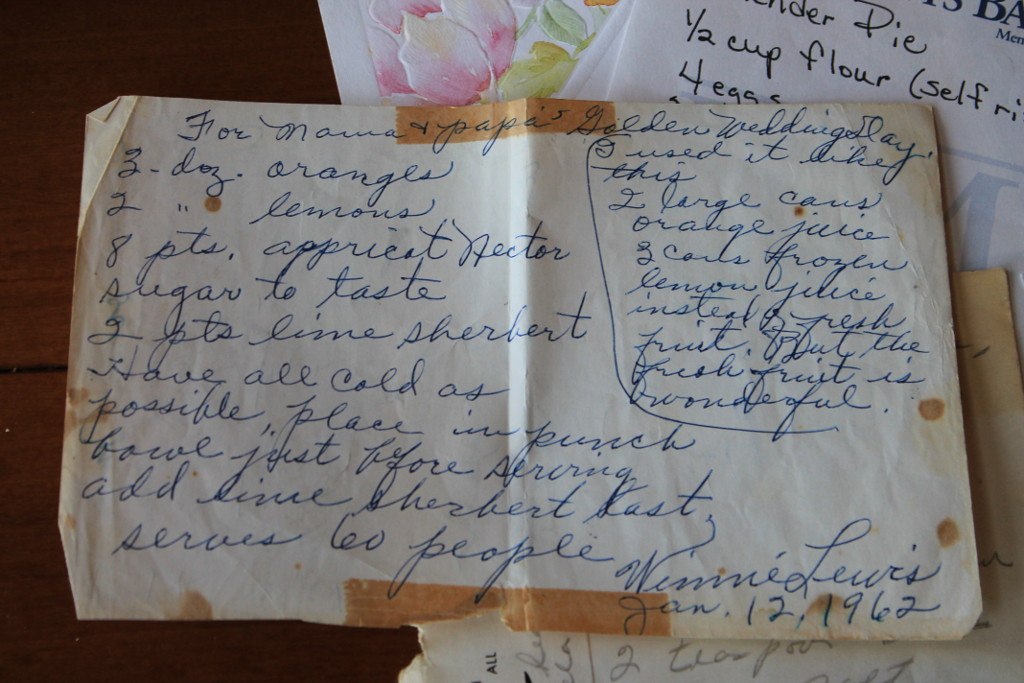 For Mama & papa's Golden Wedding Day.
3-doz. oranges
2 " lemons
8 pts. appricot Nectar
sugar to taste
2 pts lime sherbert
Have all cold as
possible, place in punch
bowl just before serving
add lime sherbert last,
serves 60 people
I used it like
this
2 large cans
orange juice
3 cans frozen
lemon juice
instead of fresh
fruit. But the
fresh fruit is
wonderful.
Winnie Lewis
Jan. 12, 1962
Die
1/2 cup flour (self ri
4 eggs
BA
Mem
ALL
2 teaspoon